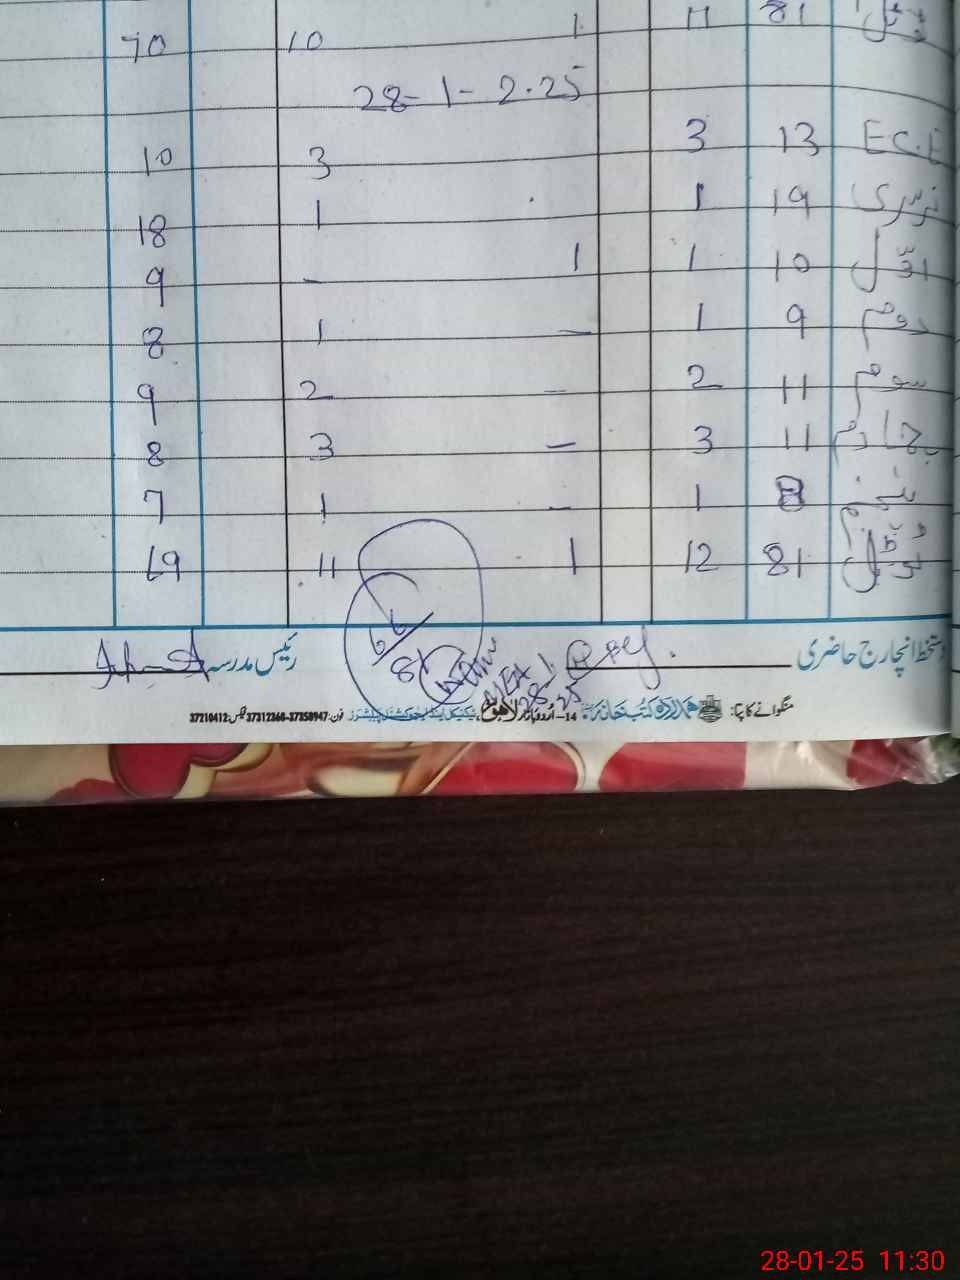 81 11 1 10 70
28-1-2.25
E.C.E 13 3 3 10
نرسری 19 1 1 18
اوّل 10 1 1 - 9
دوم 9 1 - 1 8
سوم 11 2 - 2 9
چہارم 11 3 - 3 8
پنجم 8 1 - 1 7
میزان 81 12 1 11 69
دستخط انچارج حاضری رئیس مدرسہ
81
28-1-25
منگوانے کا پتا: ہمدرد کتب خانہ 14-اردو بازار لاہور فون: 37358947-37312368 فیکس: 37210412
28-01-25 11:30